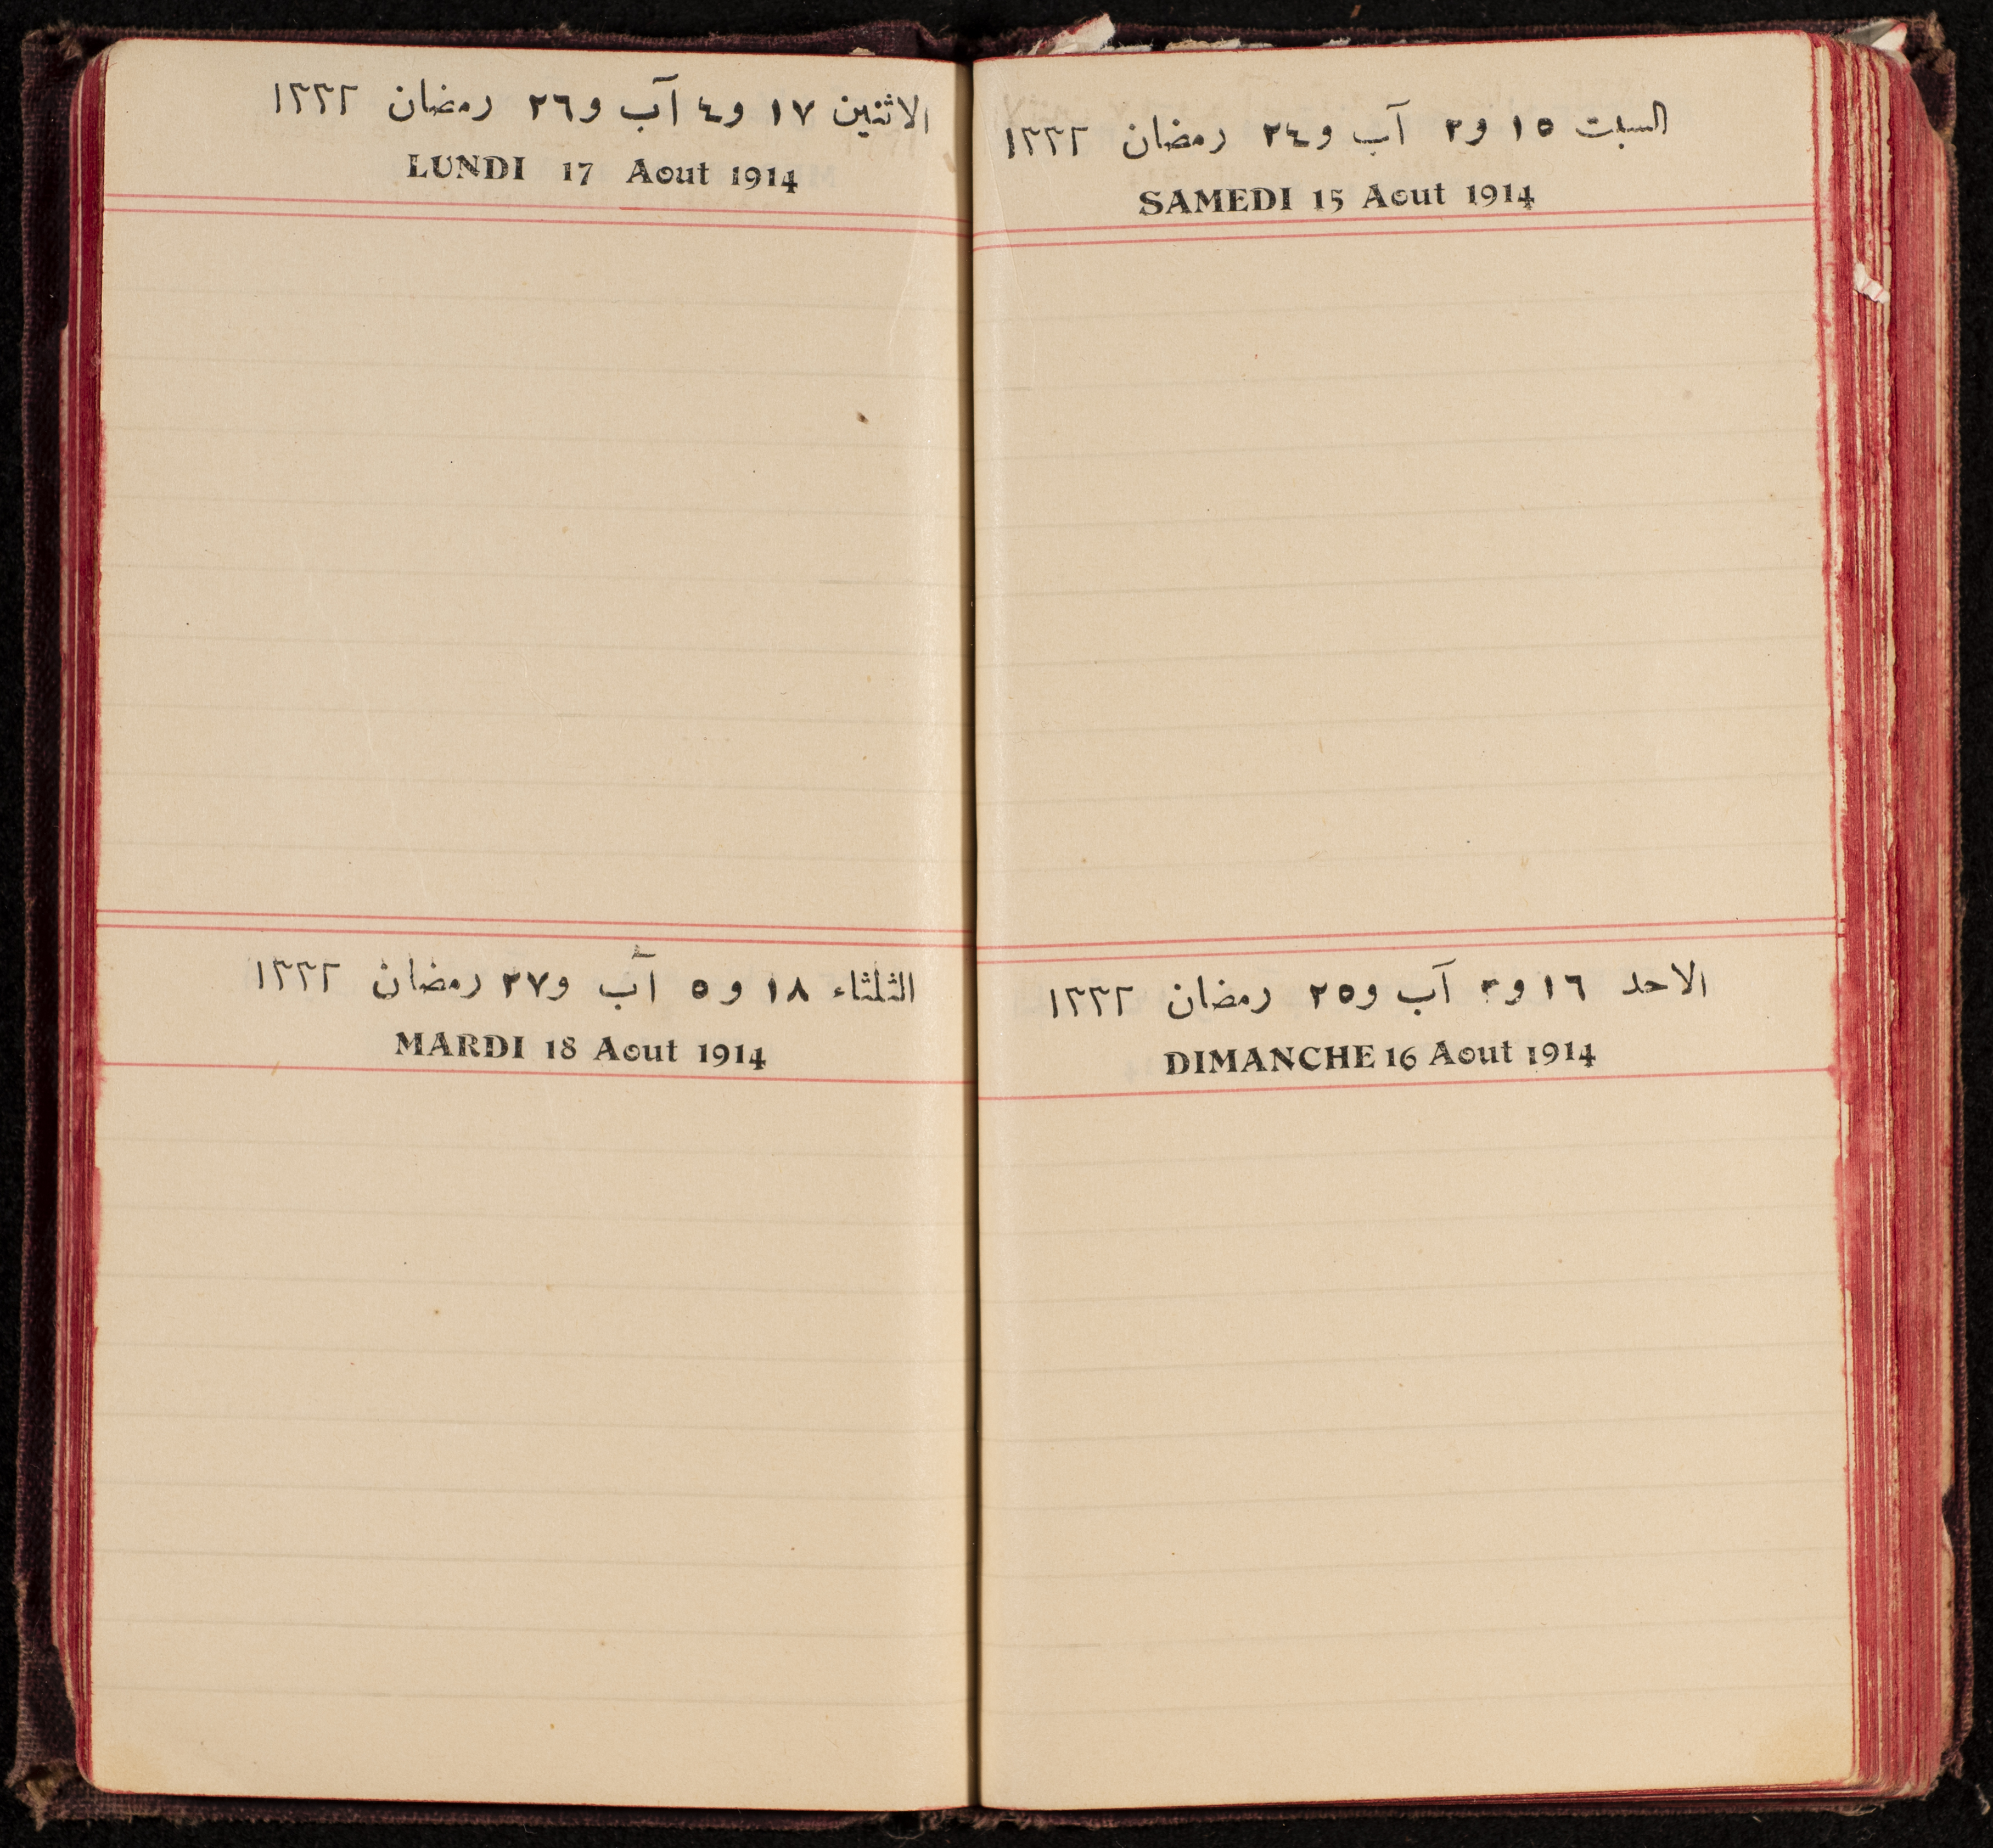 السبت ١٥ و٢ آب و٢٤ رمضان ١٣٣٢
SAMEDI 15 Aout 1914
الاحد ١٦ و٣ آب و٢٥ رمضان ١٣٣٢
DIMANCHE 16 Aout 1914
الاثنين ١٧ و٤ آب و٢٦ رمضان ١٣٣٢
LUNDI 17 Aout 1914
الثلثاء ١٨ و٥ آب و٢٧ رمضان ١٣٣٢
MARDI 18 Aout 1914